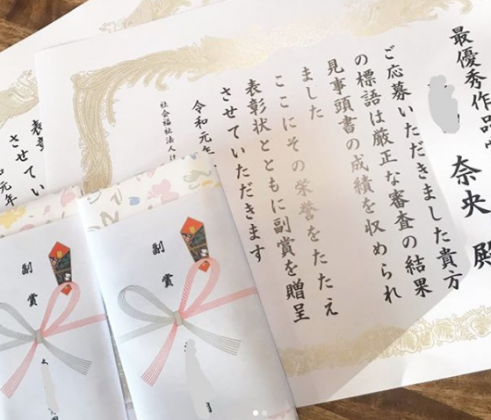 最優秀作品賞
奈央 殿
ご応募いただきました貴方
の標語は厳正な審査の結果
見事頭書の成績を収められ
ました
ここにその栄誉をたたえ
表彰状とともに副賞を贈呈
させていただきます
令和元年
社会福祉法人
表彰
させてい
和元年
副賞
副賞